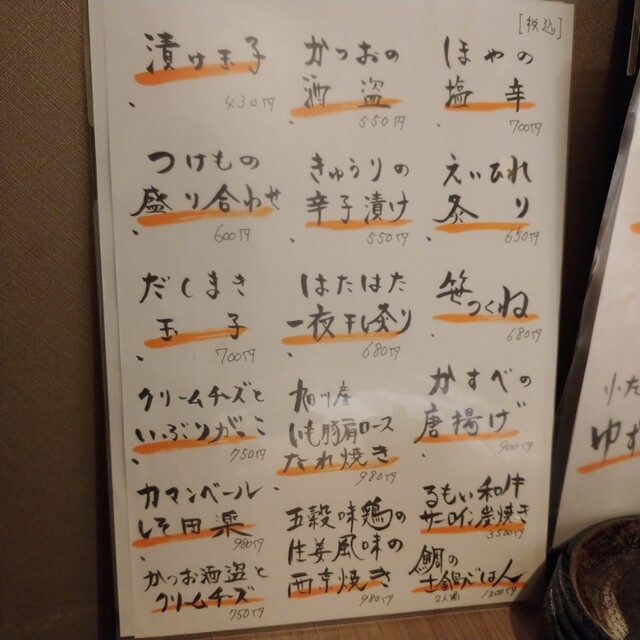 [税込]
漬け玉子
430円
かつおの
酒盗
550円
ほやの
塩辛
700円
つけもの
盛り合わせ
600円
きゅうりの
辛子漬け
550円
えいひれ
炙り
650円
だしまき
玉子
700円
はたはた
一夜干し炙り
680円
笹つくね
680円
クリームチーズと
いぶりがっこ
750円
旭川産
いも豚肩ロース
たれ焼き
980円
かすべの
唐揚げ
900円
カマンベール
しそ田楽
980円
五穀味鶏の
生姜風味の
西京焼き
980円
るもい和牛
サーロイン炭焼き
3500円
かつお酒盗と
クリームチーズ
750円
鯛の
土鍋ごはん
2人前
1200円
りた
ゆず